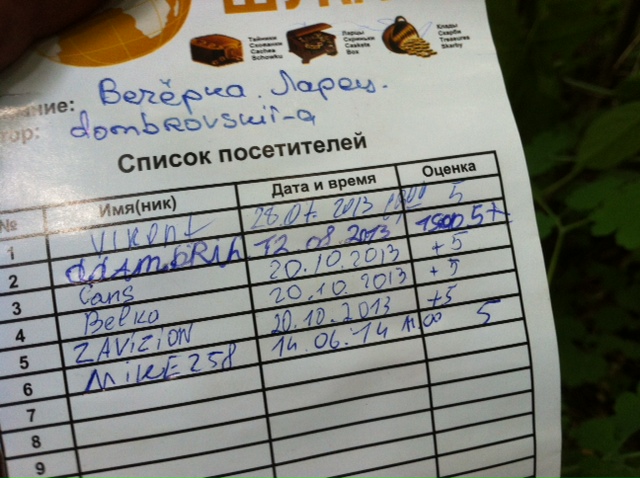 Тайники
Сховани
Caches
Schowku
Ларцы
Скреньки
Caskets
Box
Клады
Скарби
Treasures
Skarby
Вечёрка. Ларец.
dombrovskii-a
Список посетителей
№ Имя(ник) Дата и время Оценка
1 28.07.2013 5
2 12 08.2013 1500 5+
3 Cans 20.10.2013 +5
4 Belka 20.10.2013 +5
5 ZAVIZION 20.10.2013 +5
6 MIKE258 14.06.14 5
7
8
9